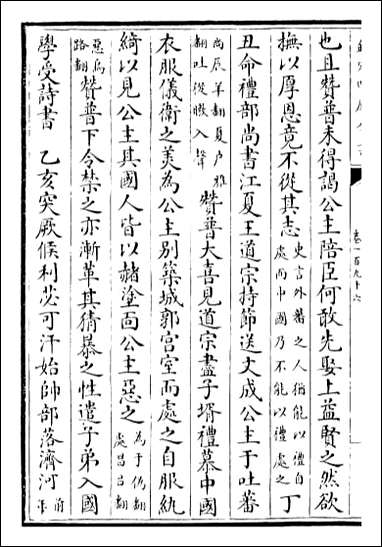 卷一百九十六
也且贊普未得謁公主陪臣何敢先娶上益賢之然欲
撫以厚恩竟不從其志史言外蕃之人猶能以禮自處而中國乃不能以禮處之丁
丑命禮部尚書江夏王道宗持節送文成公主于吐蕃
尚辰羊翻夏户雅翻吐從暾入聲贊普大喜見道宗盡子壻禮慕中國
衣服儀衛之美為公主别築城郭宫室而處之自服紈
綺以見公主其國人皆以赭塗面公主惡之為于偽翻處昌吕翻
惡烏路翻贊普下令禁之亦漸革其猜暴之性遣子弟入國
學受詩書 乙亥突厥候利苾可汗始帥部落濟河前